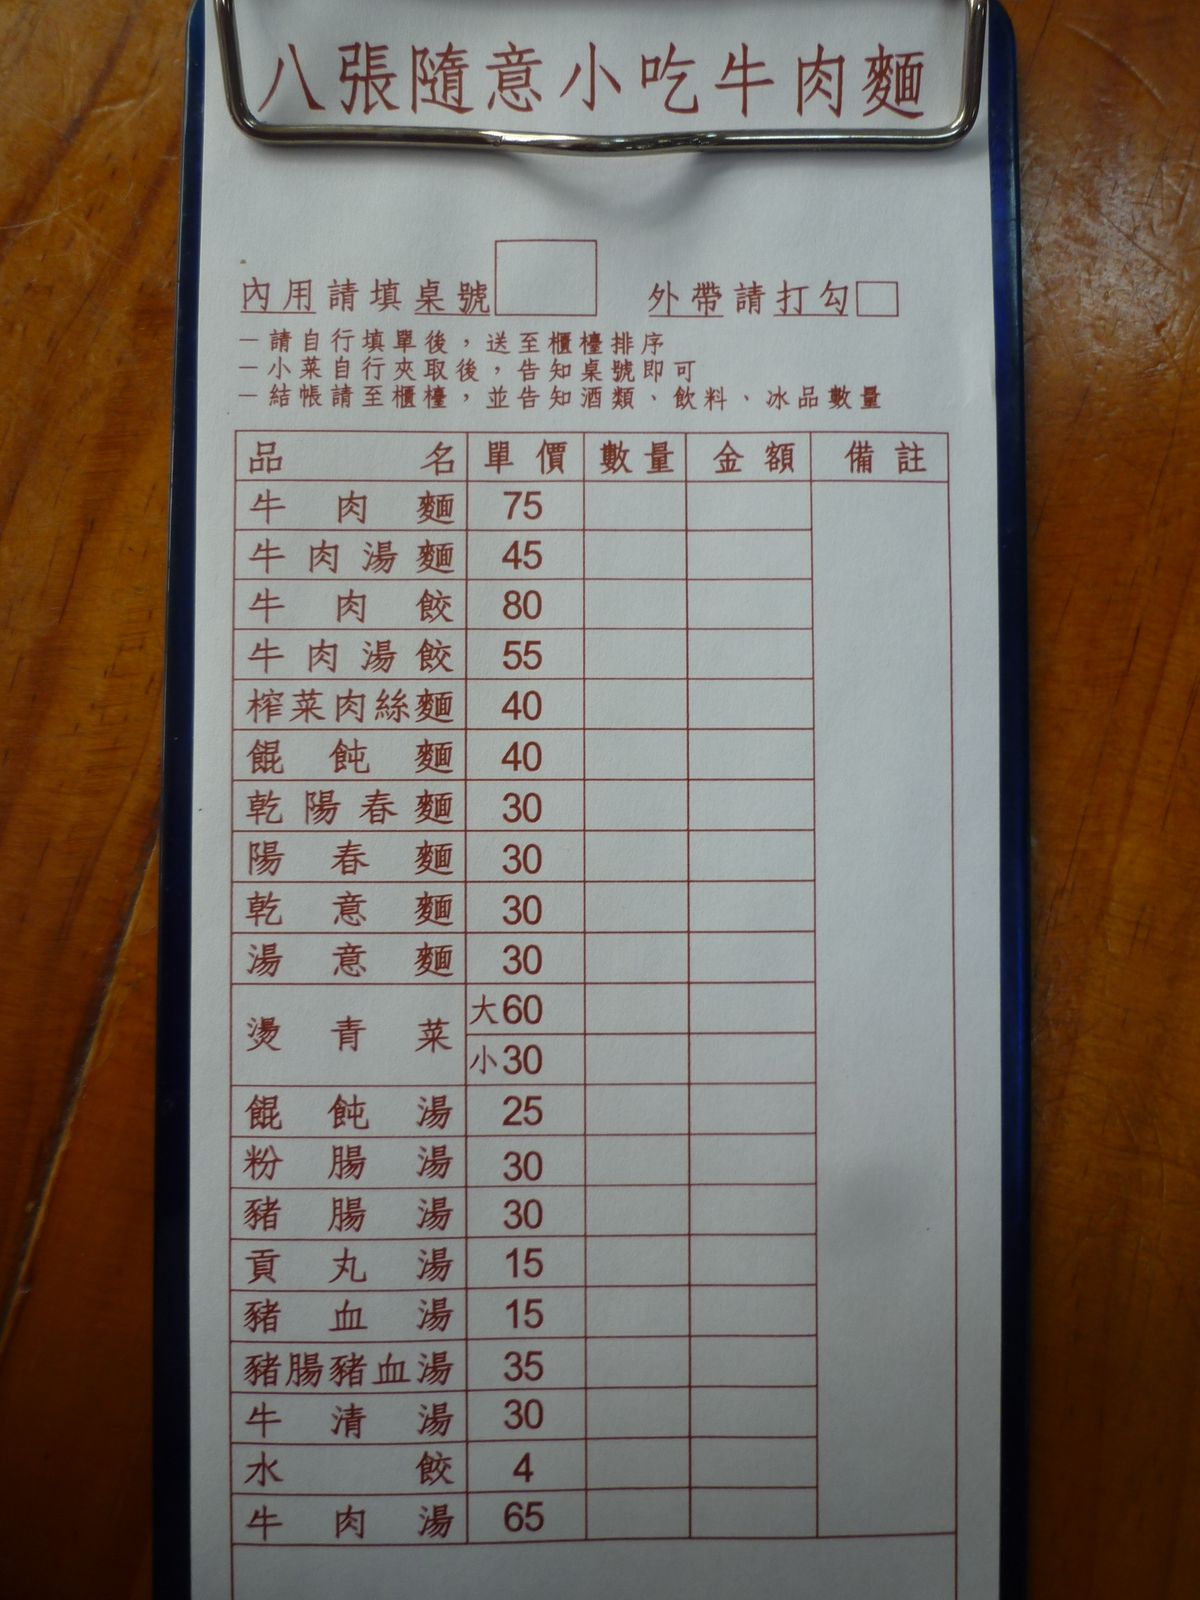 八張隨意小吃牛肉麵
內用請填桌號 外帶請打勾
－請自行填單後，送至櫃檯排序
－小菜自行夾取後，告知桌號即可
－結帳請至櫃檯，並告知酒類、飲料、冰品數量
品名 單價 數量 金額 備註
牛肉麵 75
牛肉湯麵 45
牛肉餃 80
牛肉湯餃 55
榨菜肉絲麵 40
餛飩麵 40
乾陽春麵 30
陽春麵 30
乾意麵 30
湯意麵 30
燙青菜 大60
小30
餛飩湯 25
粉腸湯 30
豬腸湯 30
貢丸湯 15
豬血湯 15
豬腸豬血湯 35
牛清湯 30
水餃 4
牛肉湯 65